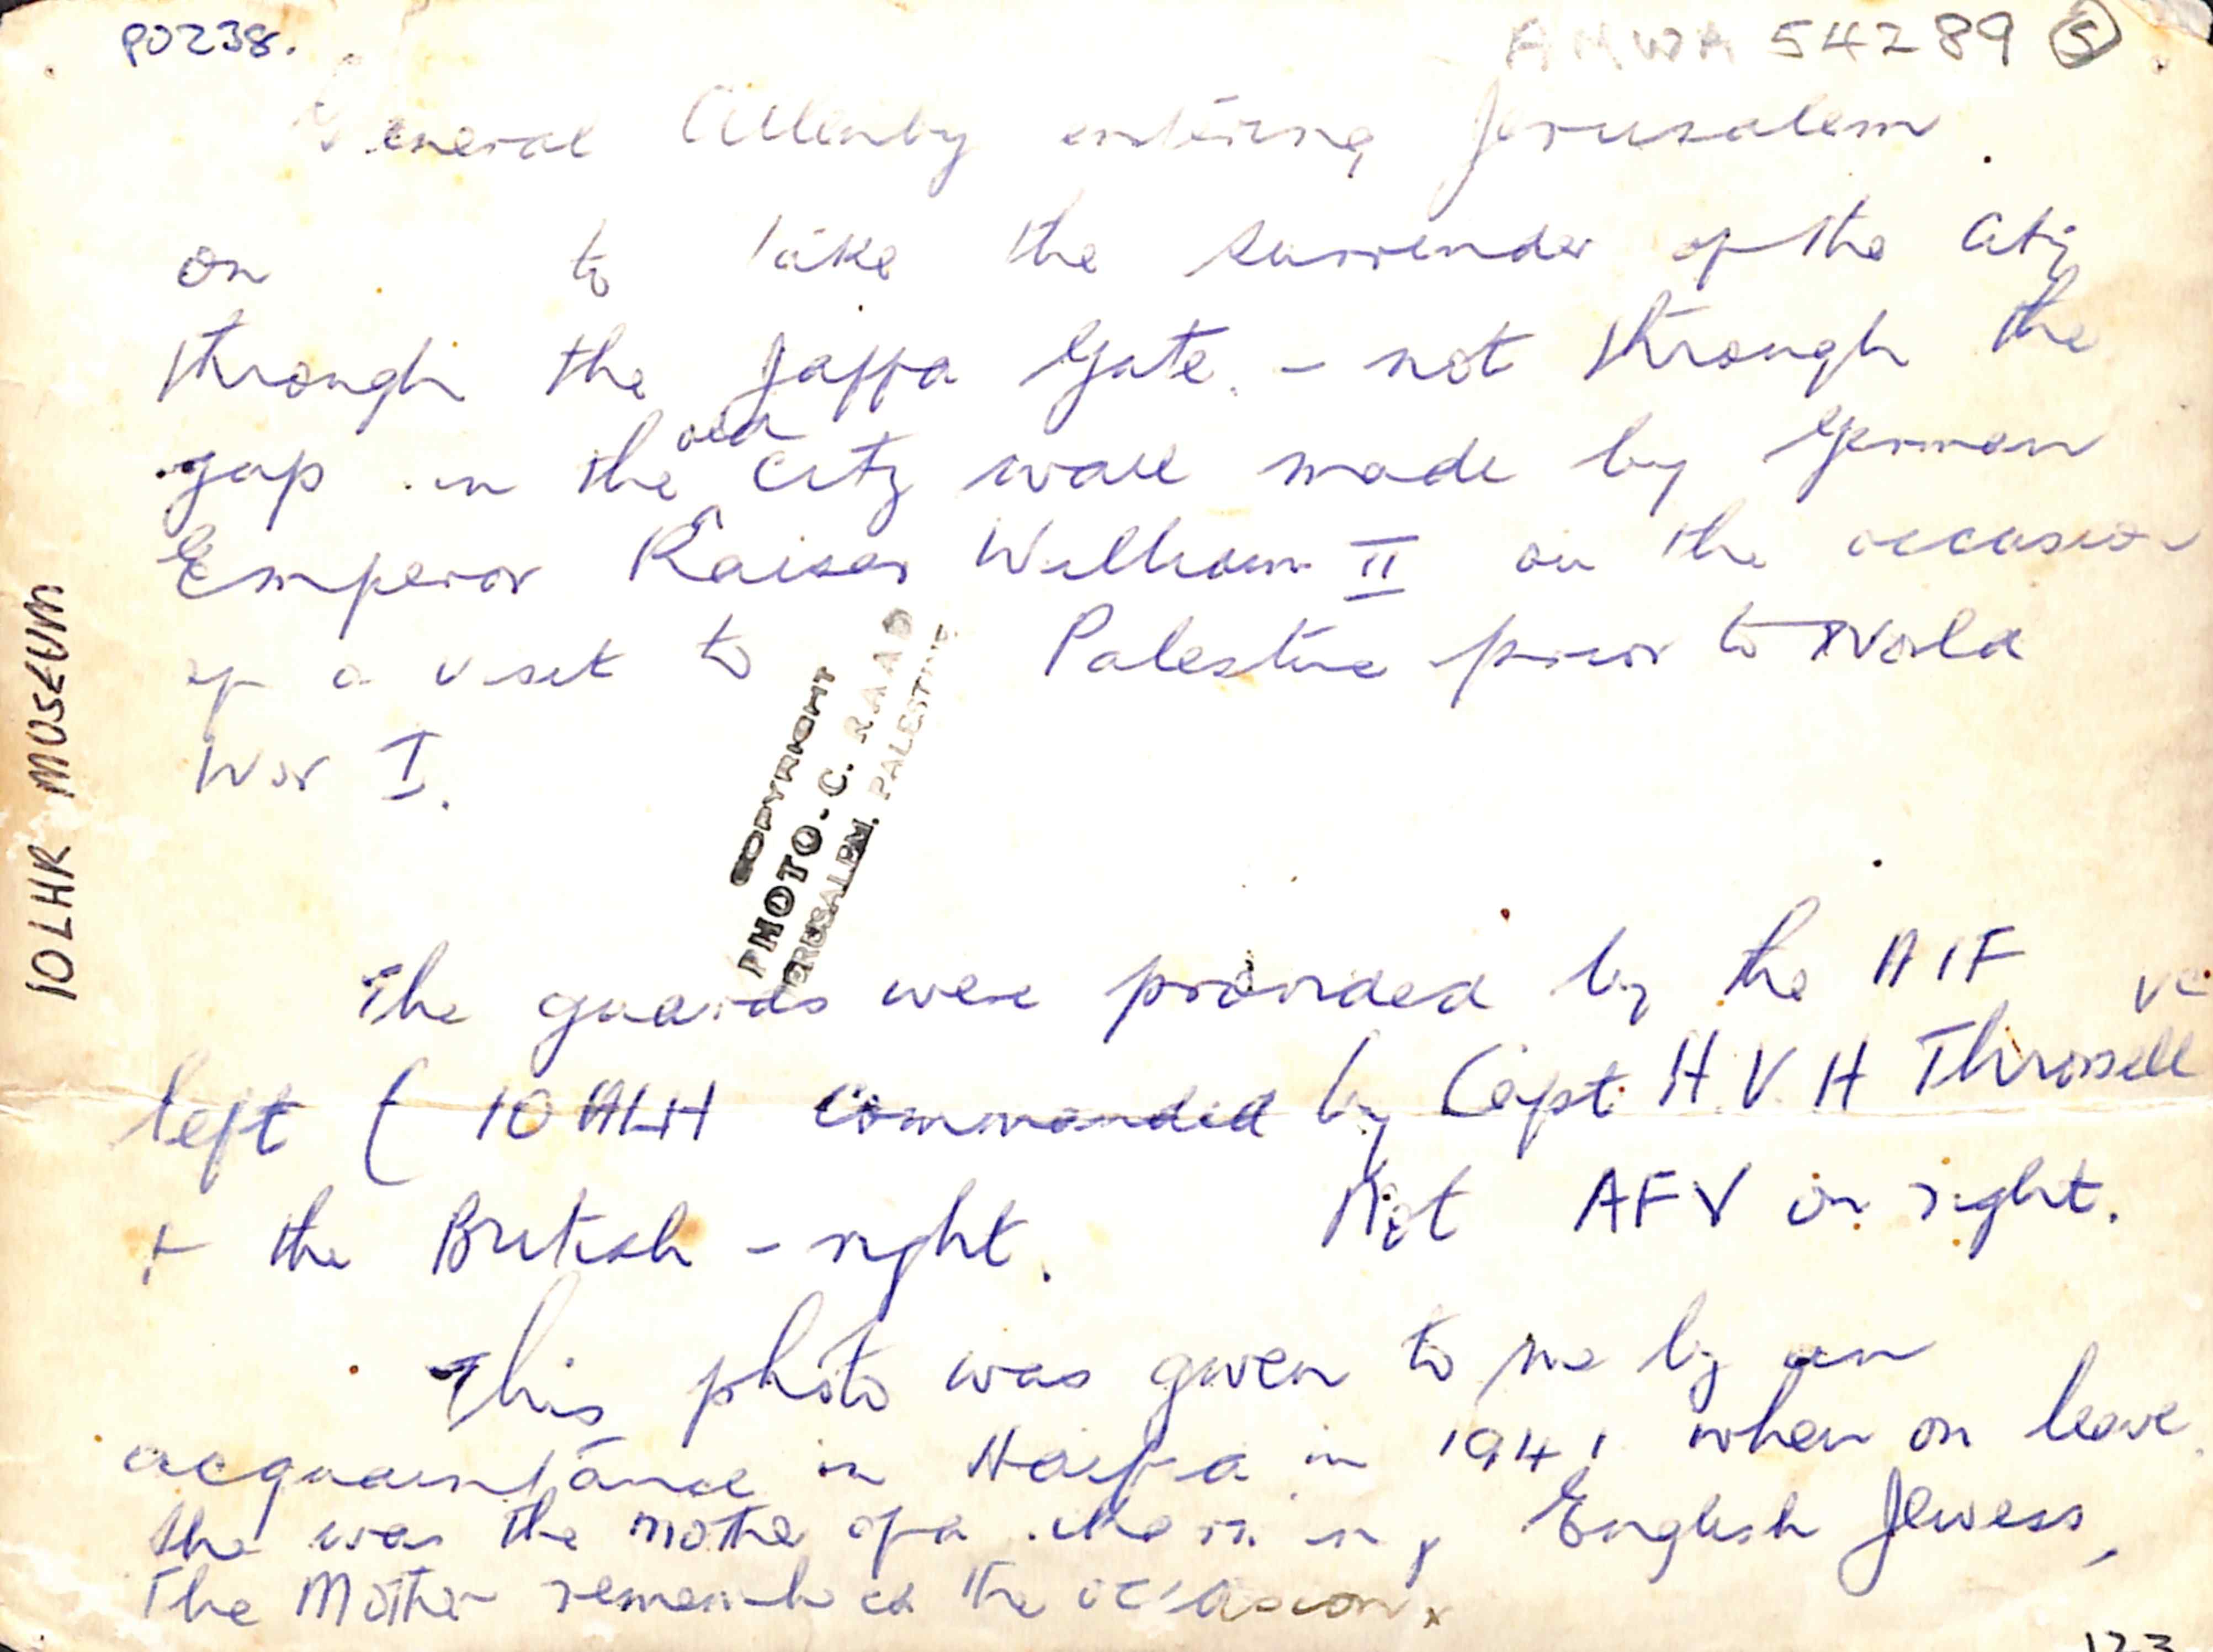 P0238.
AMWA 54289 (5)
General Allenby entering Jerusalem
on to take the surrender of the City
through the Jaffa Gate. - not through the
old
gap in the city wall made by German
Emperor Kaiser William II on the occasion
of a visit to Palestine prior to World
War I.
COPYRIGHT
PHOTO-C. RAAD
JERUSALEM. PALESTINE
10LHR MUSEUM
The guards were provided by the AIF
VC
left ( 10 ALH commanded by Capt H.V.H Throssell
+ the British - right. Not AFV on right.
This photo was given to me by an
acquaintance in Haifa in 1941 when on leave.
She was the mother of a English Jewess,
The Mother remembered the occasion
123